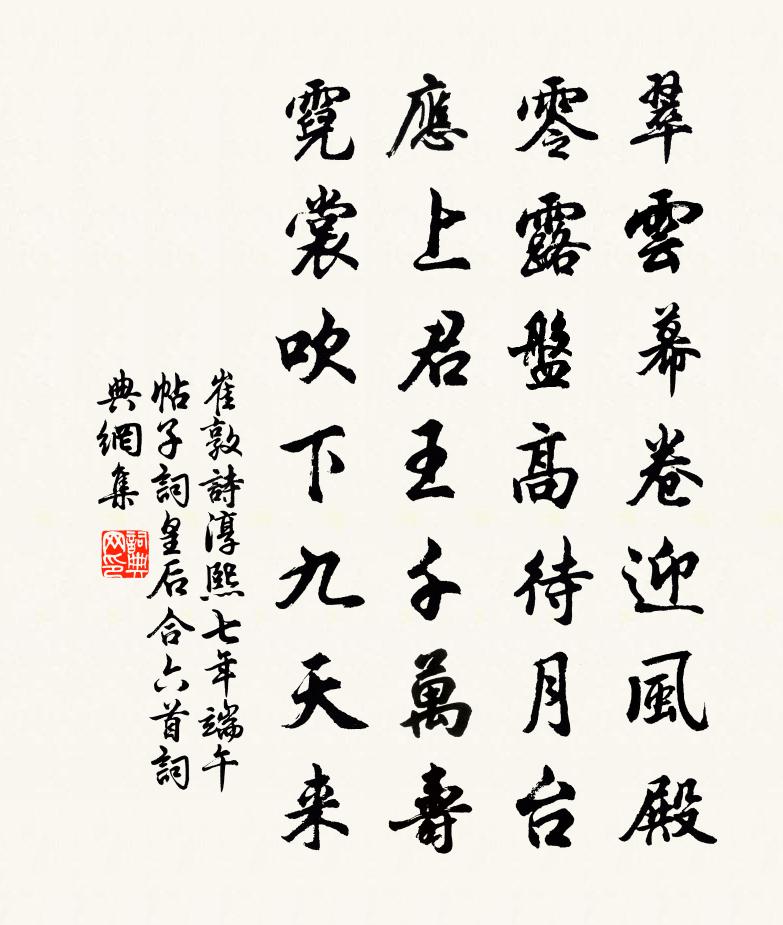 翠雲幕卷迎風殿
零露盤高待月台
應上君王千萬壽
霓裳吹下九天来
崔敦詩淳熙七年端午
帖子詞皇后合六首詞
典網集
詞典网印